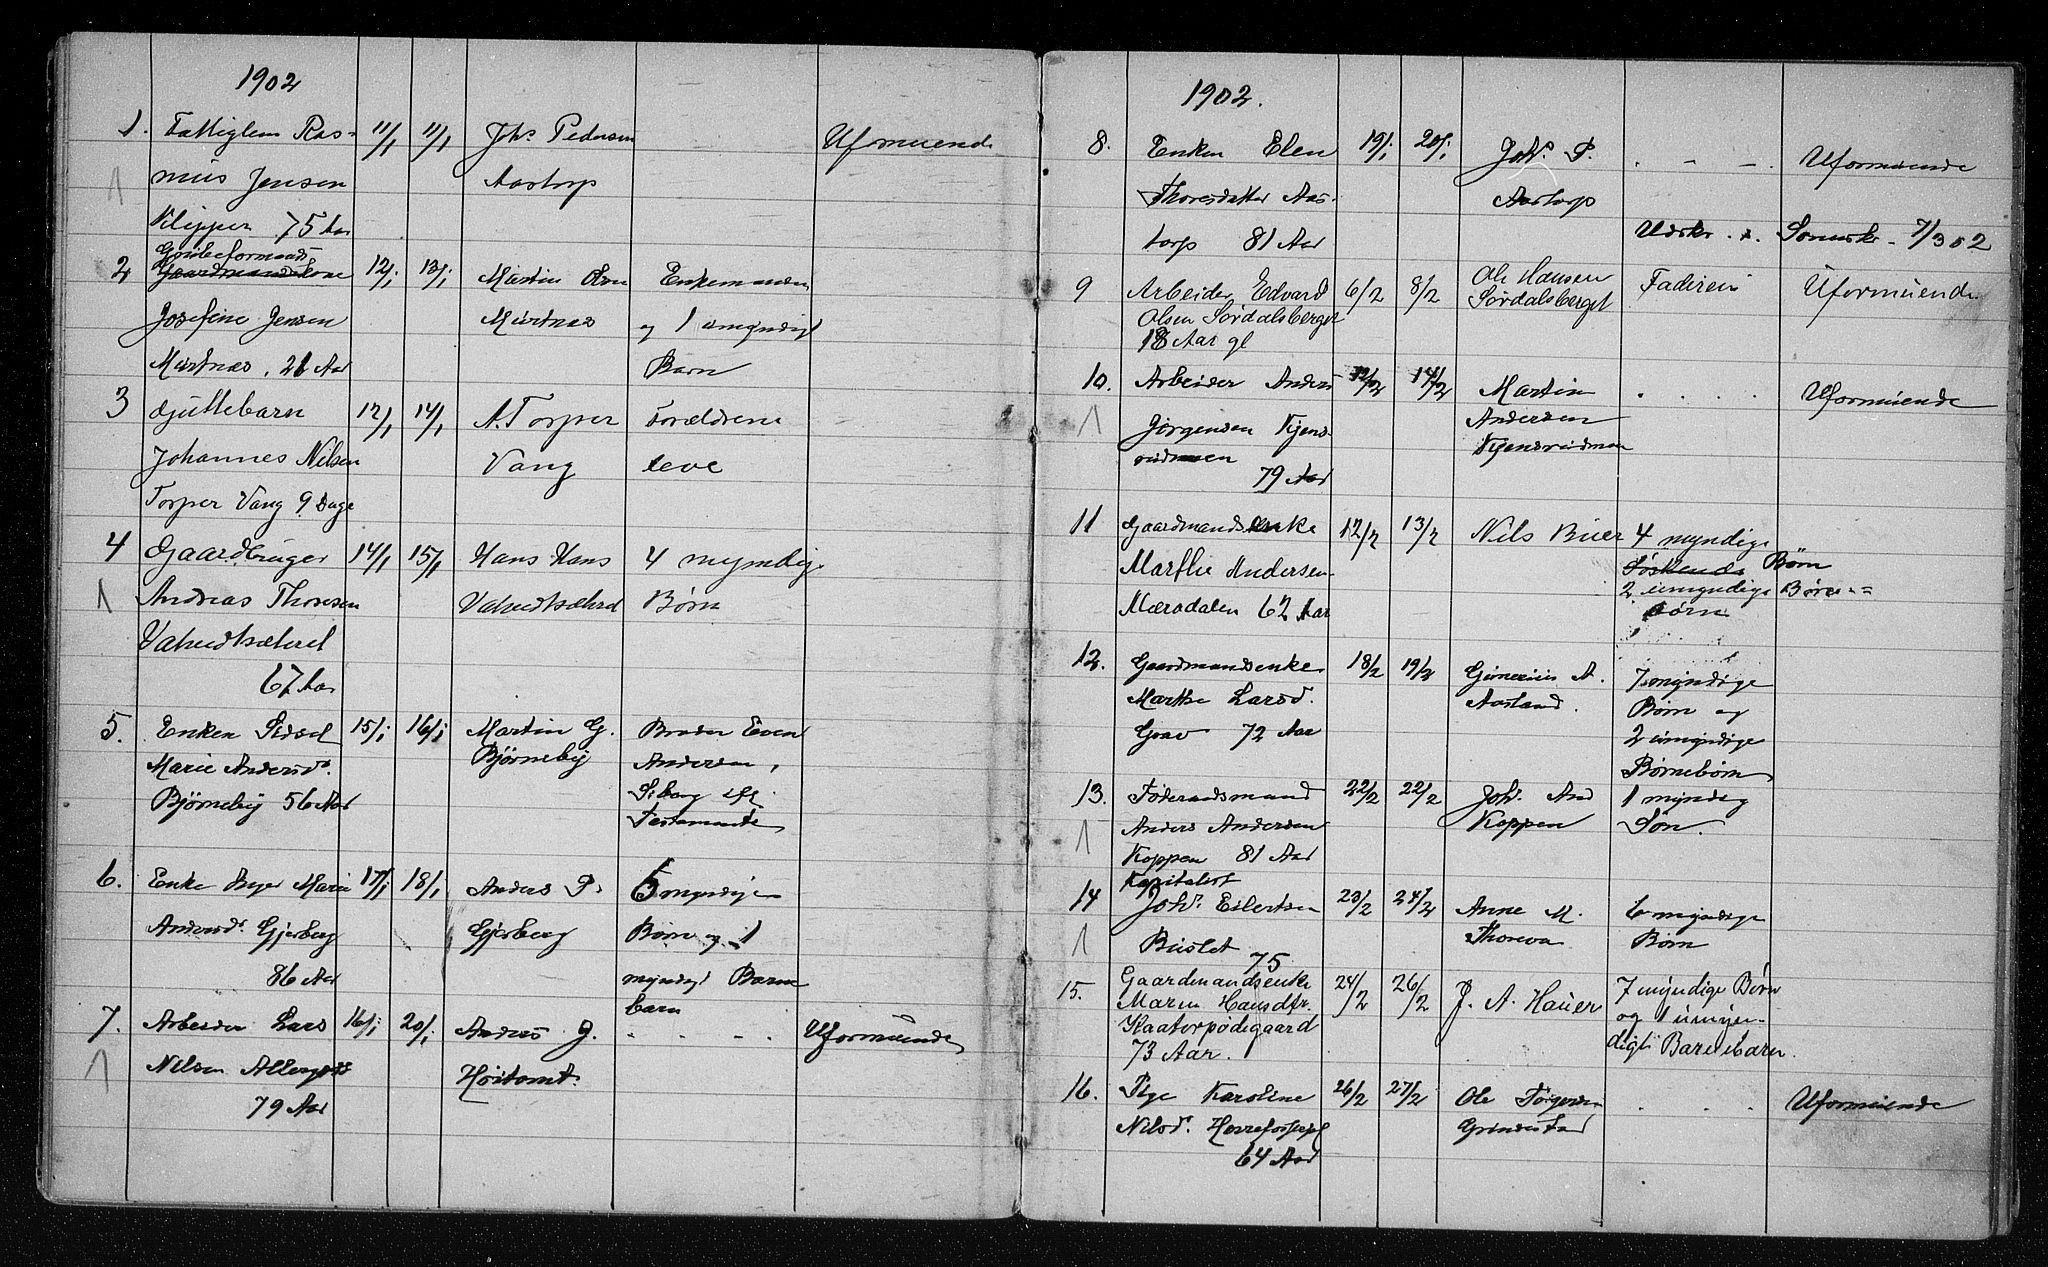 1902
1. Fattiglem Ras- 11/1 11/1 Johs Pedersen Uformuend
mus Jensen Aastorp
1
Klipper 75 Aar
Grubeformands
2 Gaardmandskone 12/1 13/1 Martin Olsen Enkemanden
Josefine Jensen Murtnæs og 1 umyndigt
Murtnæs, 21 Aar Barn
3 Guttebarn 12/1 14/1 A. Torper Forældrene
Johannes Nilsen Vang leve
Torper Vang 9 Dage
4 Gaardbruger 14/1 15/1 Hans Hans 4 myndige
1 Andreas Thoresen Børn
67 Aar
5. Enken Sidsel 15/1 16/1 Martin G. Broder Even
Marie Andersd. Bjørneby Andersen,
Bjørneby 56 Aar
Testamente
6. Enke Inger Marie 17/1 18/1 Anders P. 5 myndige
Andersd. Gjerberg Gjerberg Børn og 1
86 Aar myndigt Barne
barn
7. Arbeider Lars 16/1 20/1 Anders J. . . . . Uformuende
1 Nilsen Høitomt.
79 Aar
1902.
8. Enken Elen 19/1 20/1 Johs. P. . - - . Uformuende
Thoresdatter Aas- Aastorp
torp 81 Aar 7/3 02
9 Arbeider Edvard 6/2 8/2 Ole Hansen Faderen Uformuende
Olsen Sørdalsberget Sørdalsberget
18 Aar gl
10. Arbeider Anders 12/2 14/2 Martin . . . . Uformuende
1 Jørgensen Kjens- Andersen
rudmoen Kjensrudmoen
79 Aar
11 Gaardmandsenke 12/2 13/2 Nils Buer 4 myndige
Marthe Andersen Søskende Børn
Mærradalen 62 Aar 2 umyndige Børne-
børn
12. Gaardmandsenke 18/2 19/2 A. 7 myndige
Marthe Larsd. Aasland. Børn og
Grav 72 Aar 2 umyndige
Børnebørn
13. Føderaadsmand 22/2 22/2 Johs. And 1 myndig
1 Anders Andersen Koppen Søn.
Koppen 81 Aar
Kapitalist
14 Johs. Eilertsen 23/2 24/2 Anne M. 6 myndige
1 Bislet Thoresen Børn
75
15. Gaardmandsenke 24/2 26/2 J. A. Hauer 7 myndige Børn
Maren Hansdtr. og 1 umyn-
Kaatorpødegaard digt Barnebarn.
73 Aar.
16. Pige Karoline 26/2 27/2 Ole Torgersen . . . Uformuende
Nilsd. Grimstad
64 Aar